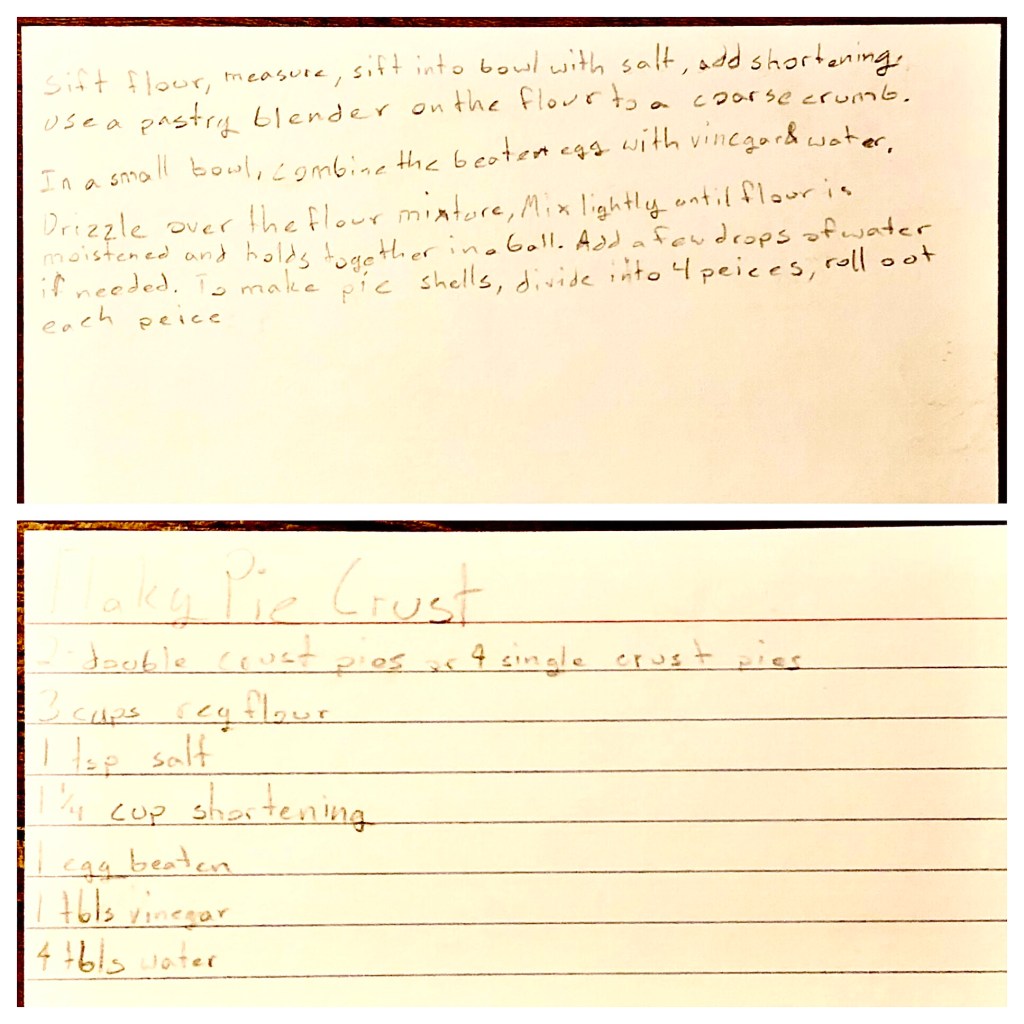 Sift flour, measure, sift into bowl with salt, add shortening.
Use a pastry blender on the flour to a coarse crumb.
In a small bowl, combine the beaten egg with vinegar & water.
Drizzle over the flour mixture, Mix lightly until flour is
moistened and holds together in a ball. Add a few drops of water
if needed. To make pie shells, divide into 4 peices, roll out
each peice
Flaky Pie Crust
2 double crust pies or 4 single crust pies
3 cups reg flour
1 tsp salt
1 1/4 cup shortening
1 egg beaten
1 tbls vinegar
4 tbls water